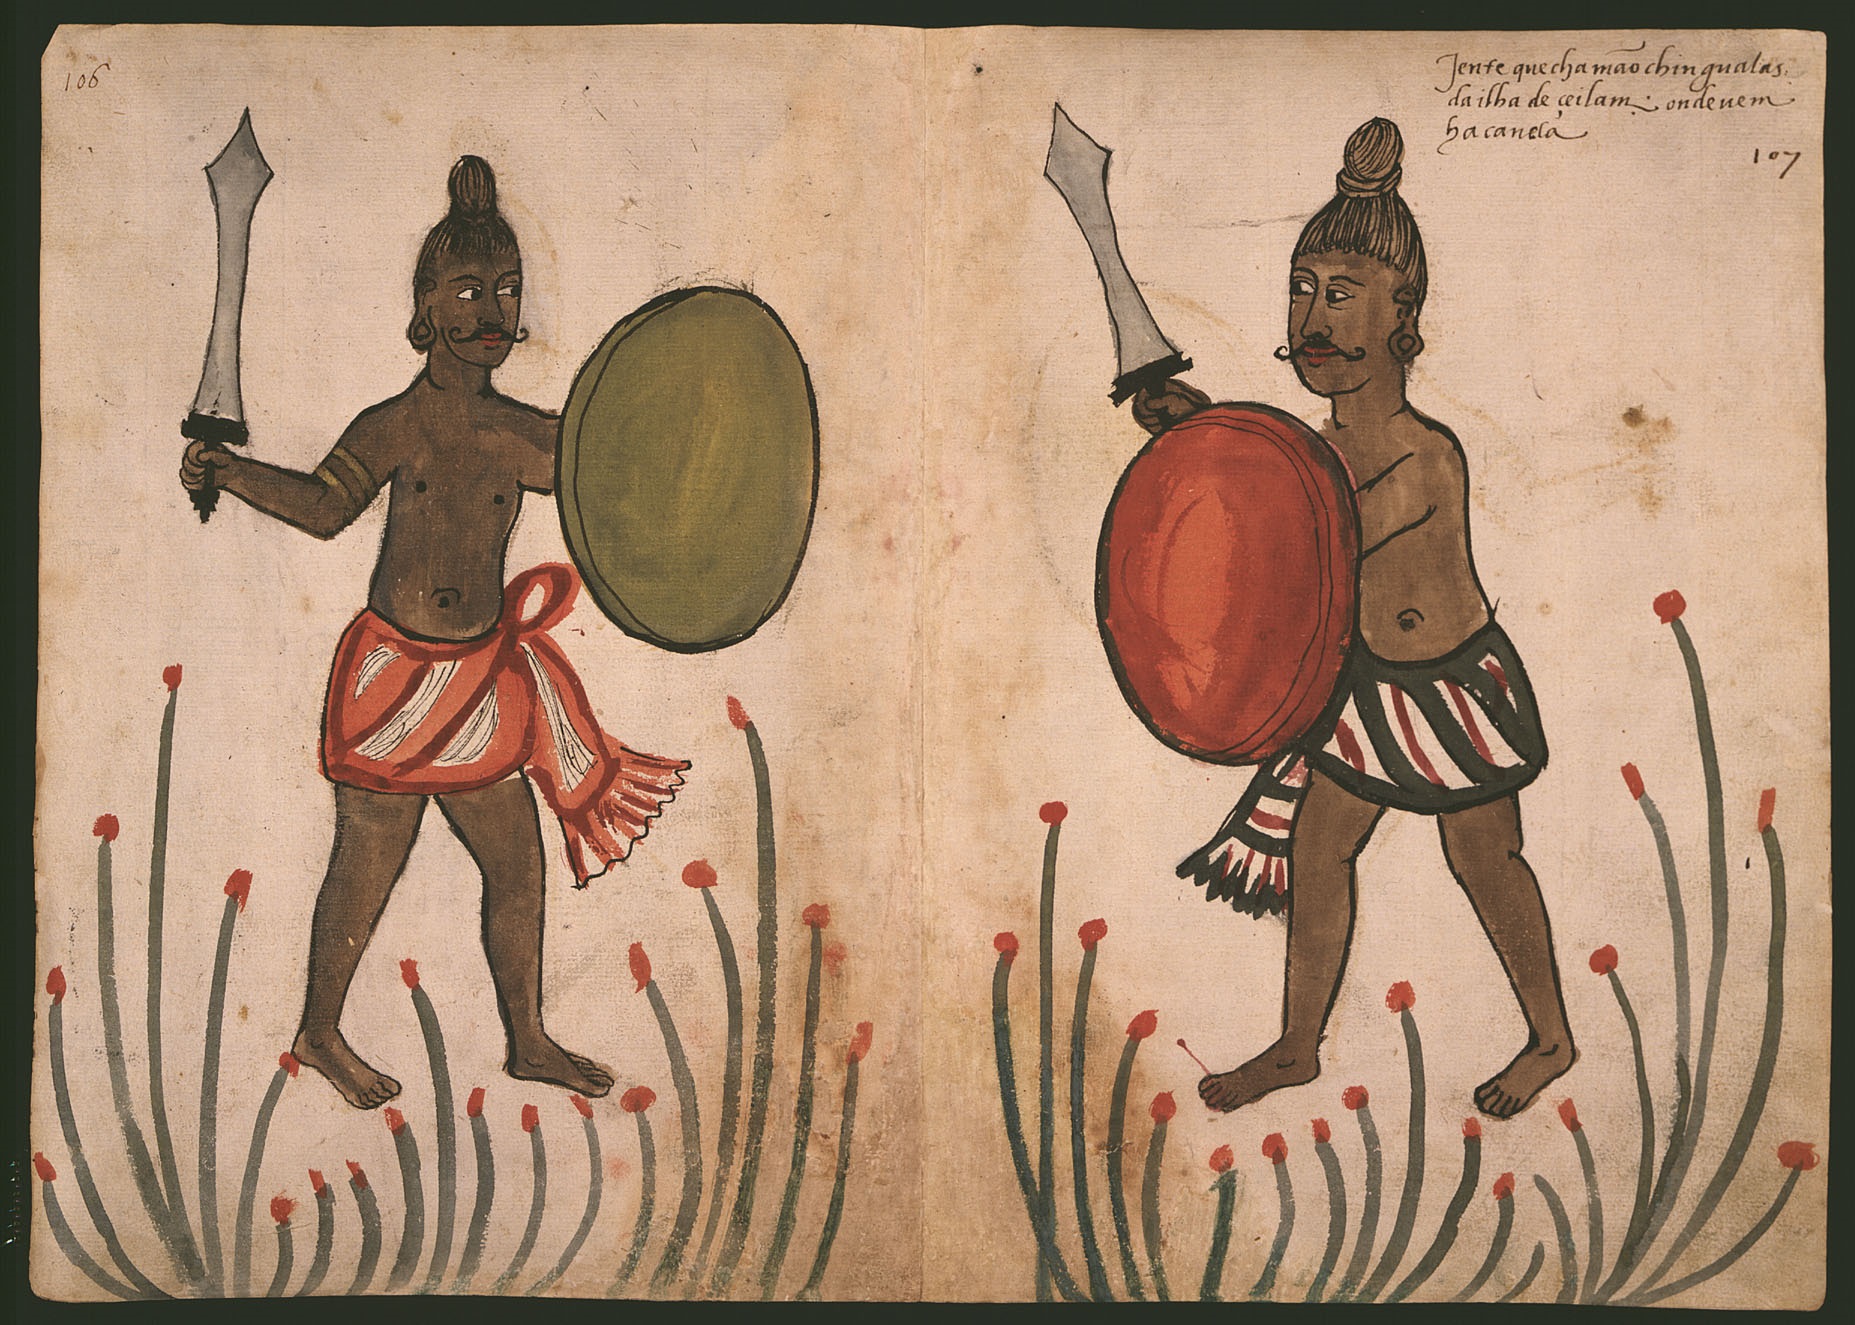 106
Jente que chamão chingualas.
da ilha de ceilam: onde vem
ha canela
107